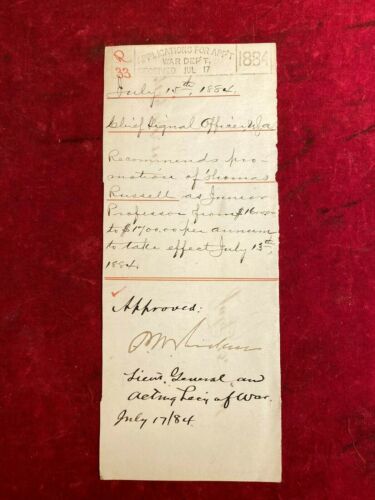 R
33
APPLICATIONS FOR APP'T
WAR DEPT.
RECEIVED JUL 17
1884
July 15th, 1884.
Chief Signal Officer, U.S.A.
Recommends pro-
motion of Thomas
Russell as Junior
Professor from $16
to $1700.00 per annum
to take effect July 13th,
1884.
Approved:
Lieut. General, and
Acting Sec'y of War.
July 17/84.